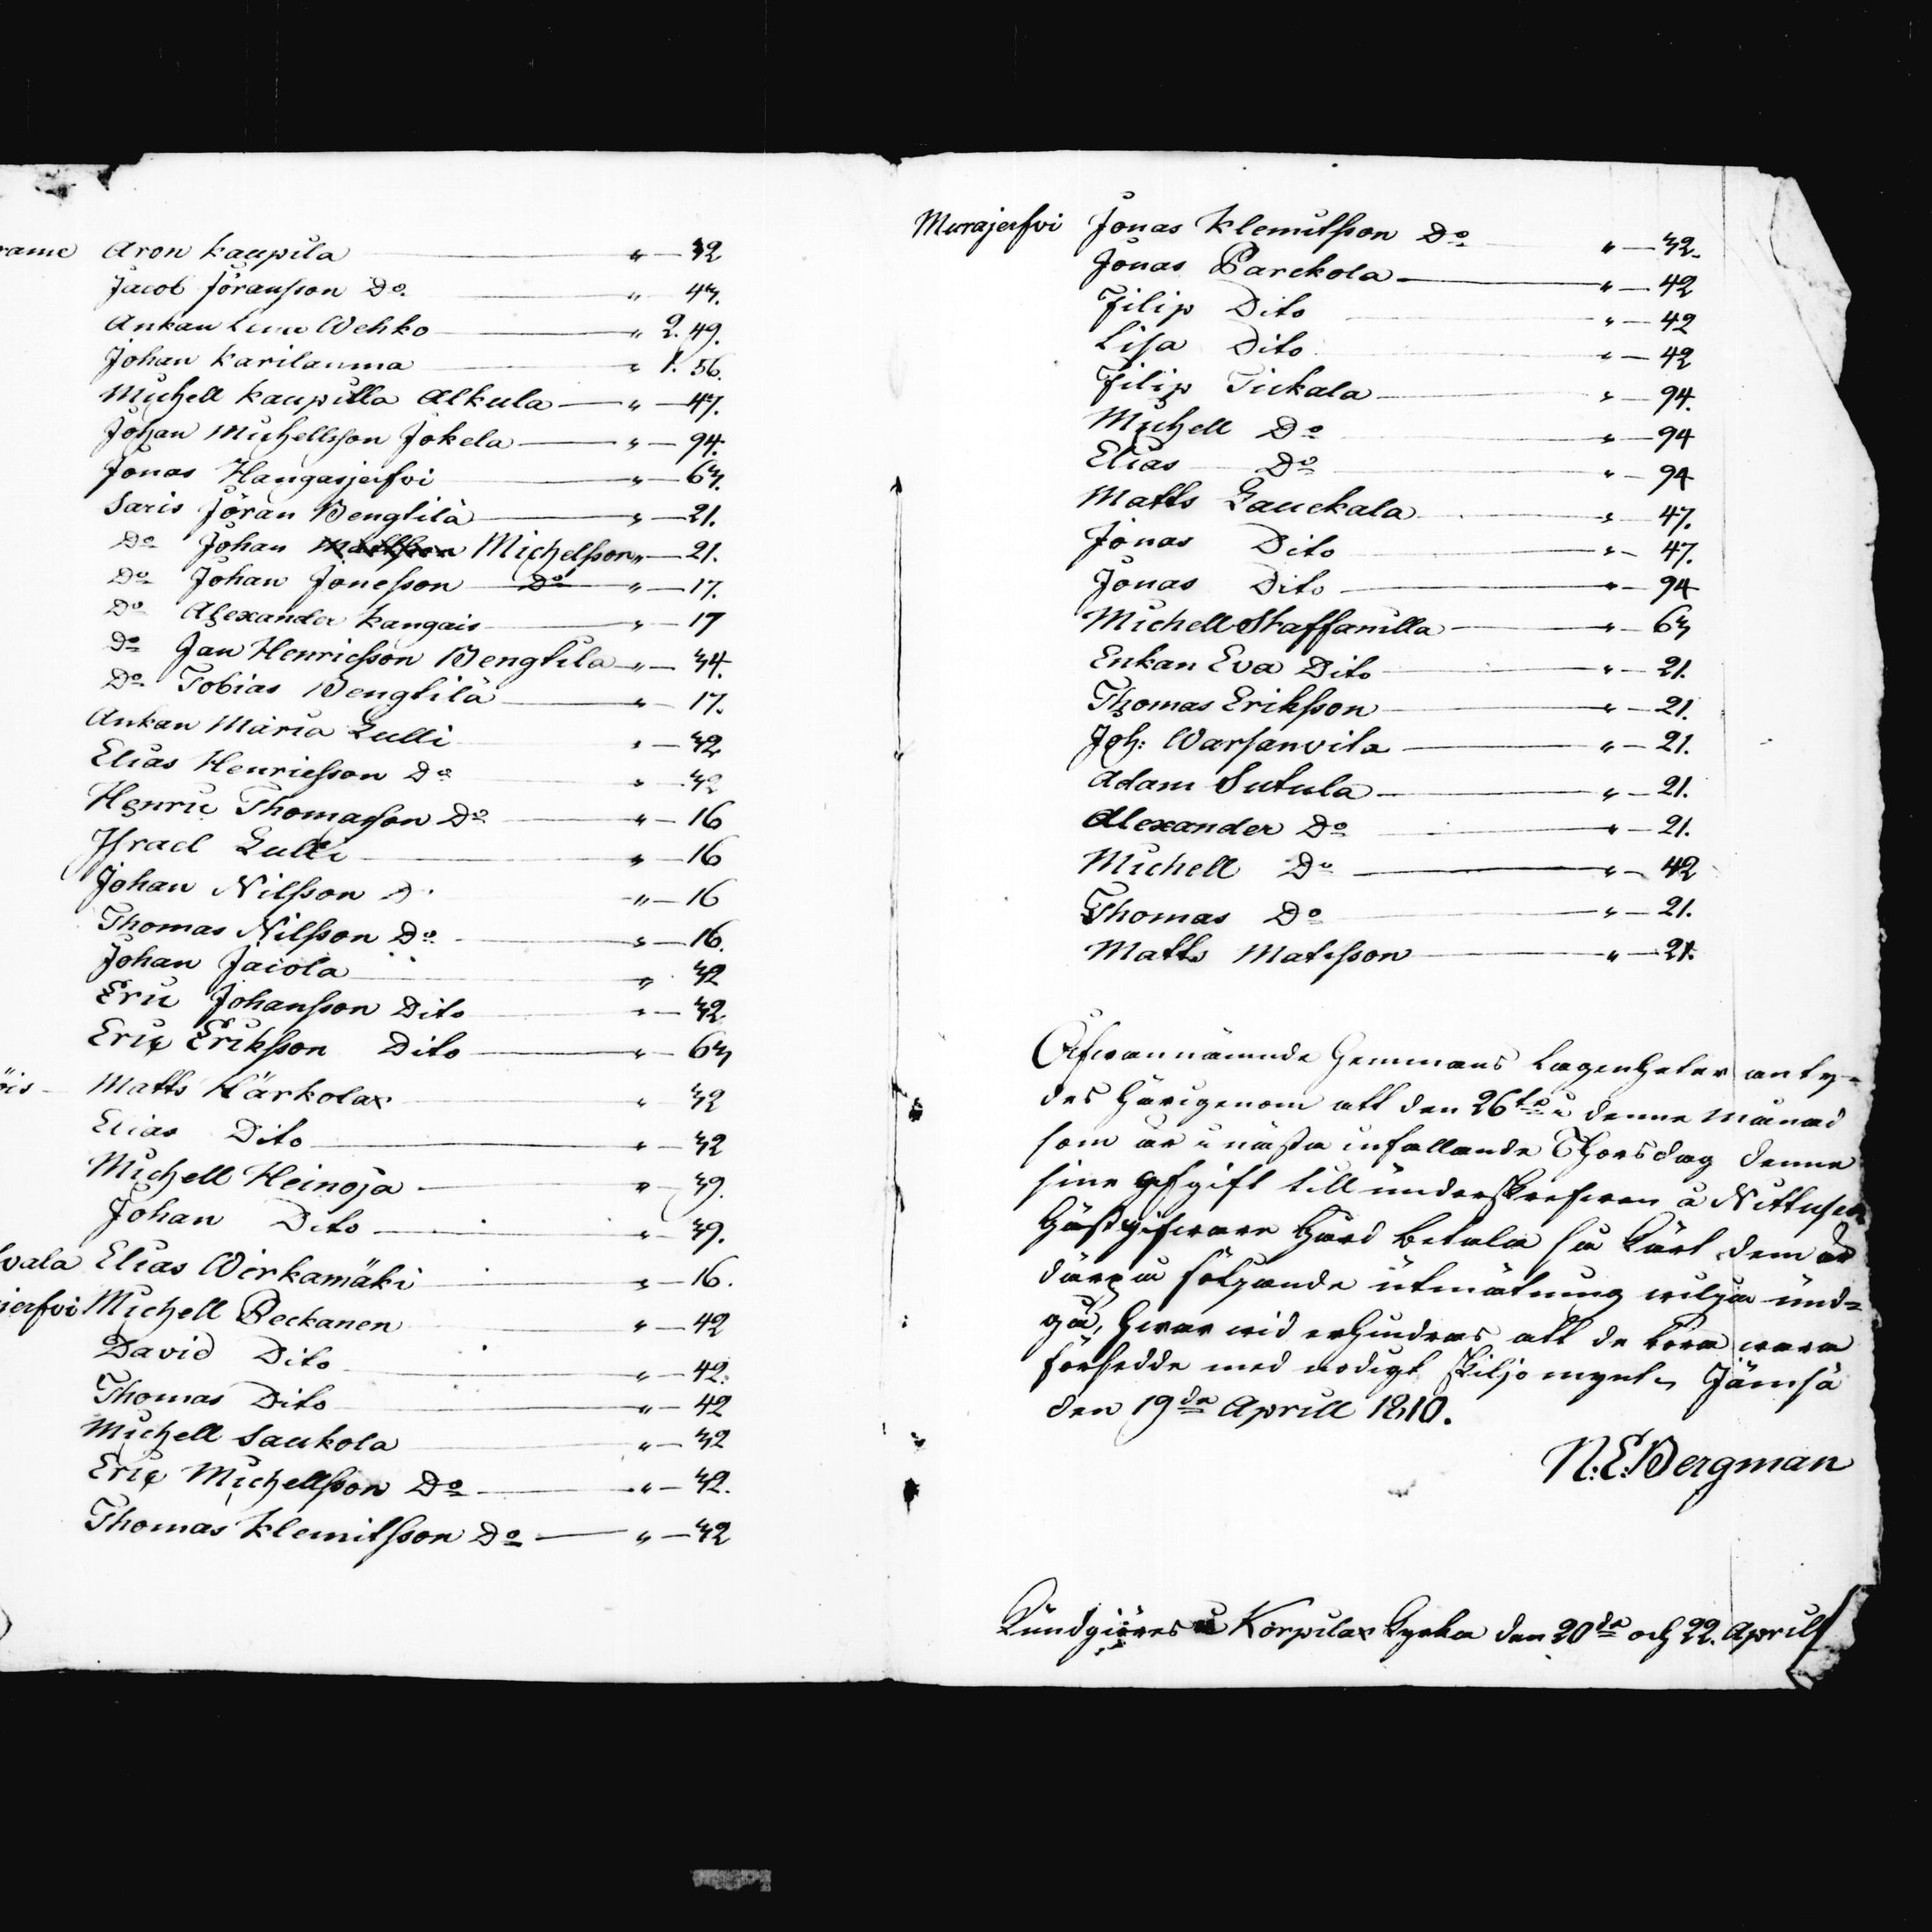 Aron Kaupila " — 32
Jacob Jöransson Do " 43.
Ankan Lena Wehko " 2. 49.
Johan Karilanma " 1. 56.
Michell Kaupilla Alkula " — 47.
Johan Michellsson Jokela " — 94.
Jonas Hangasjerfvi " — 63.
Saris Jöran Bengtilä " — 21.
Do Johan Michelsson " — 21.
Do Johan Jonesson Do " — 17.
Do Alexander Kangais " — 17
Do Jan Henricsson Bengtila " — 34.
Do Tobias Bengtilä " — 17.
Ankan Maria Lulli " — 32
Elias Henricsson Do " — 32
Henric Thomasson Do " — 16
Israel Lulli " — 16
Johan Nilsson D " — 16
Thomas Nilsson Do " — 16.
Johan Jaiola " 32
Eric Johansson Dito " — 32
Eric Eriksson Dito " — 63
Matts Härkolax " 32
Elias Dito " — 32
Michell Heinoja " — 39.
Johan Dito " — 39.
Elias Wirkamäki " — 16.
Michell Beckanen " — 42
David Dito " — 42.
Thomas Dito " — 42
Michell Saukola " — 32
Eric Michellsson Do " — 32.
Thomas Klemitsson Do " — 32
Murajerfvi Jonas Klemitsson Do " — 32.
Jonas Parckola " — 42
Filip Dito " — 42
Lisa Dito " — 42
Filip Tickala " — 94.
Michell Do " — 94
Elias Do " — 94
Matts Lauckala " 47.
Jonas Dito " — 47.
Jonas Dito " — 94
Michell Staffanilla " — 63
Enkan Eva Dito " — 21.
Thomas Eriksson " — 21.
Joh: Warsanvita " — 21.
Adam Sutula " — 21.
Alexander Do " — 21.
Michell Do " — 42
Thomas Do " — 21.
Matts Matsson " — 21.
Ofwannämnde Hemmans Lägenheter anty-
des härigenom att den 26te i denne Månad
som är nästa infallande Thorsdag denne
sine afgift till underskrefven å Nittusen
Gästgifware Gård betala så kärt dem är
därpå följande utmätning wilja und-
gå, hwar wid erhindras att de böra wara
försedde med nödigt skiljomynt, Jämsä
den 19de Aprill 1810.
N: E: Bergman
Kundgiöres i Korpilax Kyrka den 20de och 22. Aprill